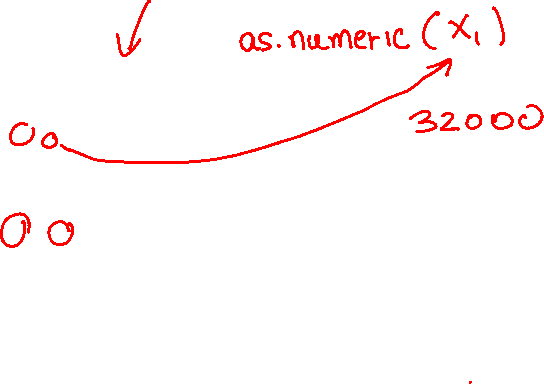 as.numeric (X₁)
32000
00
00